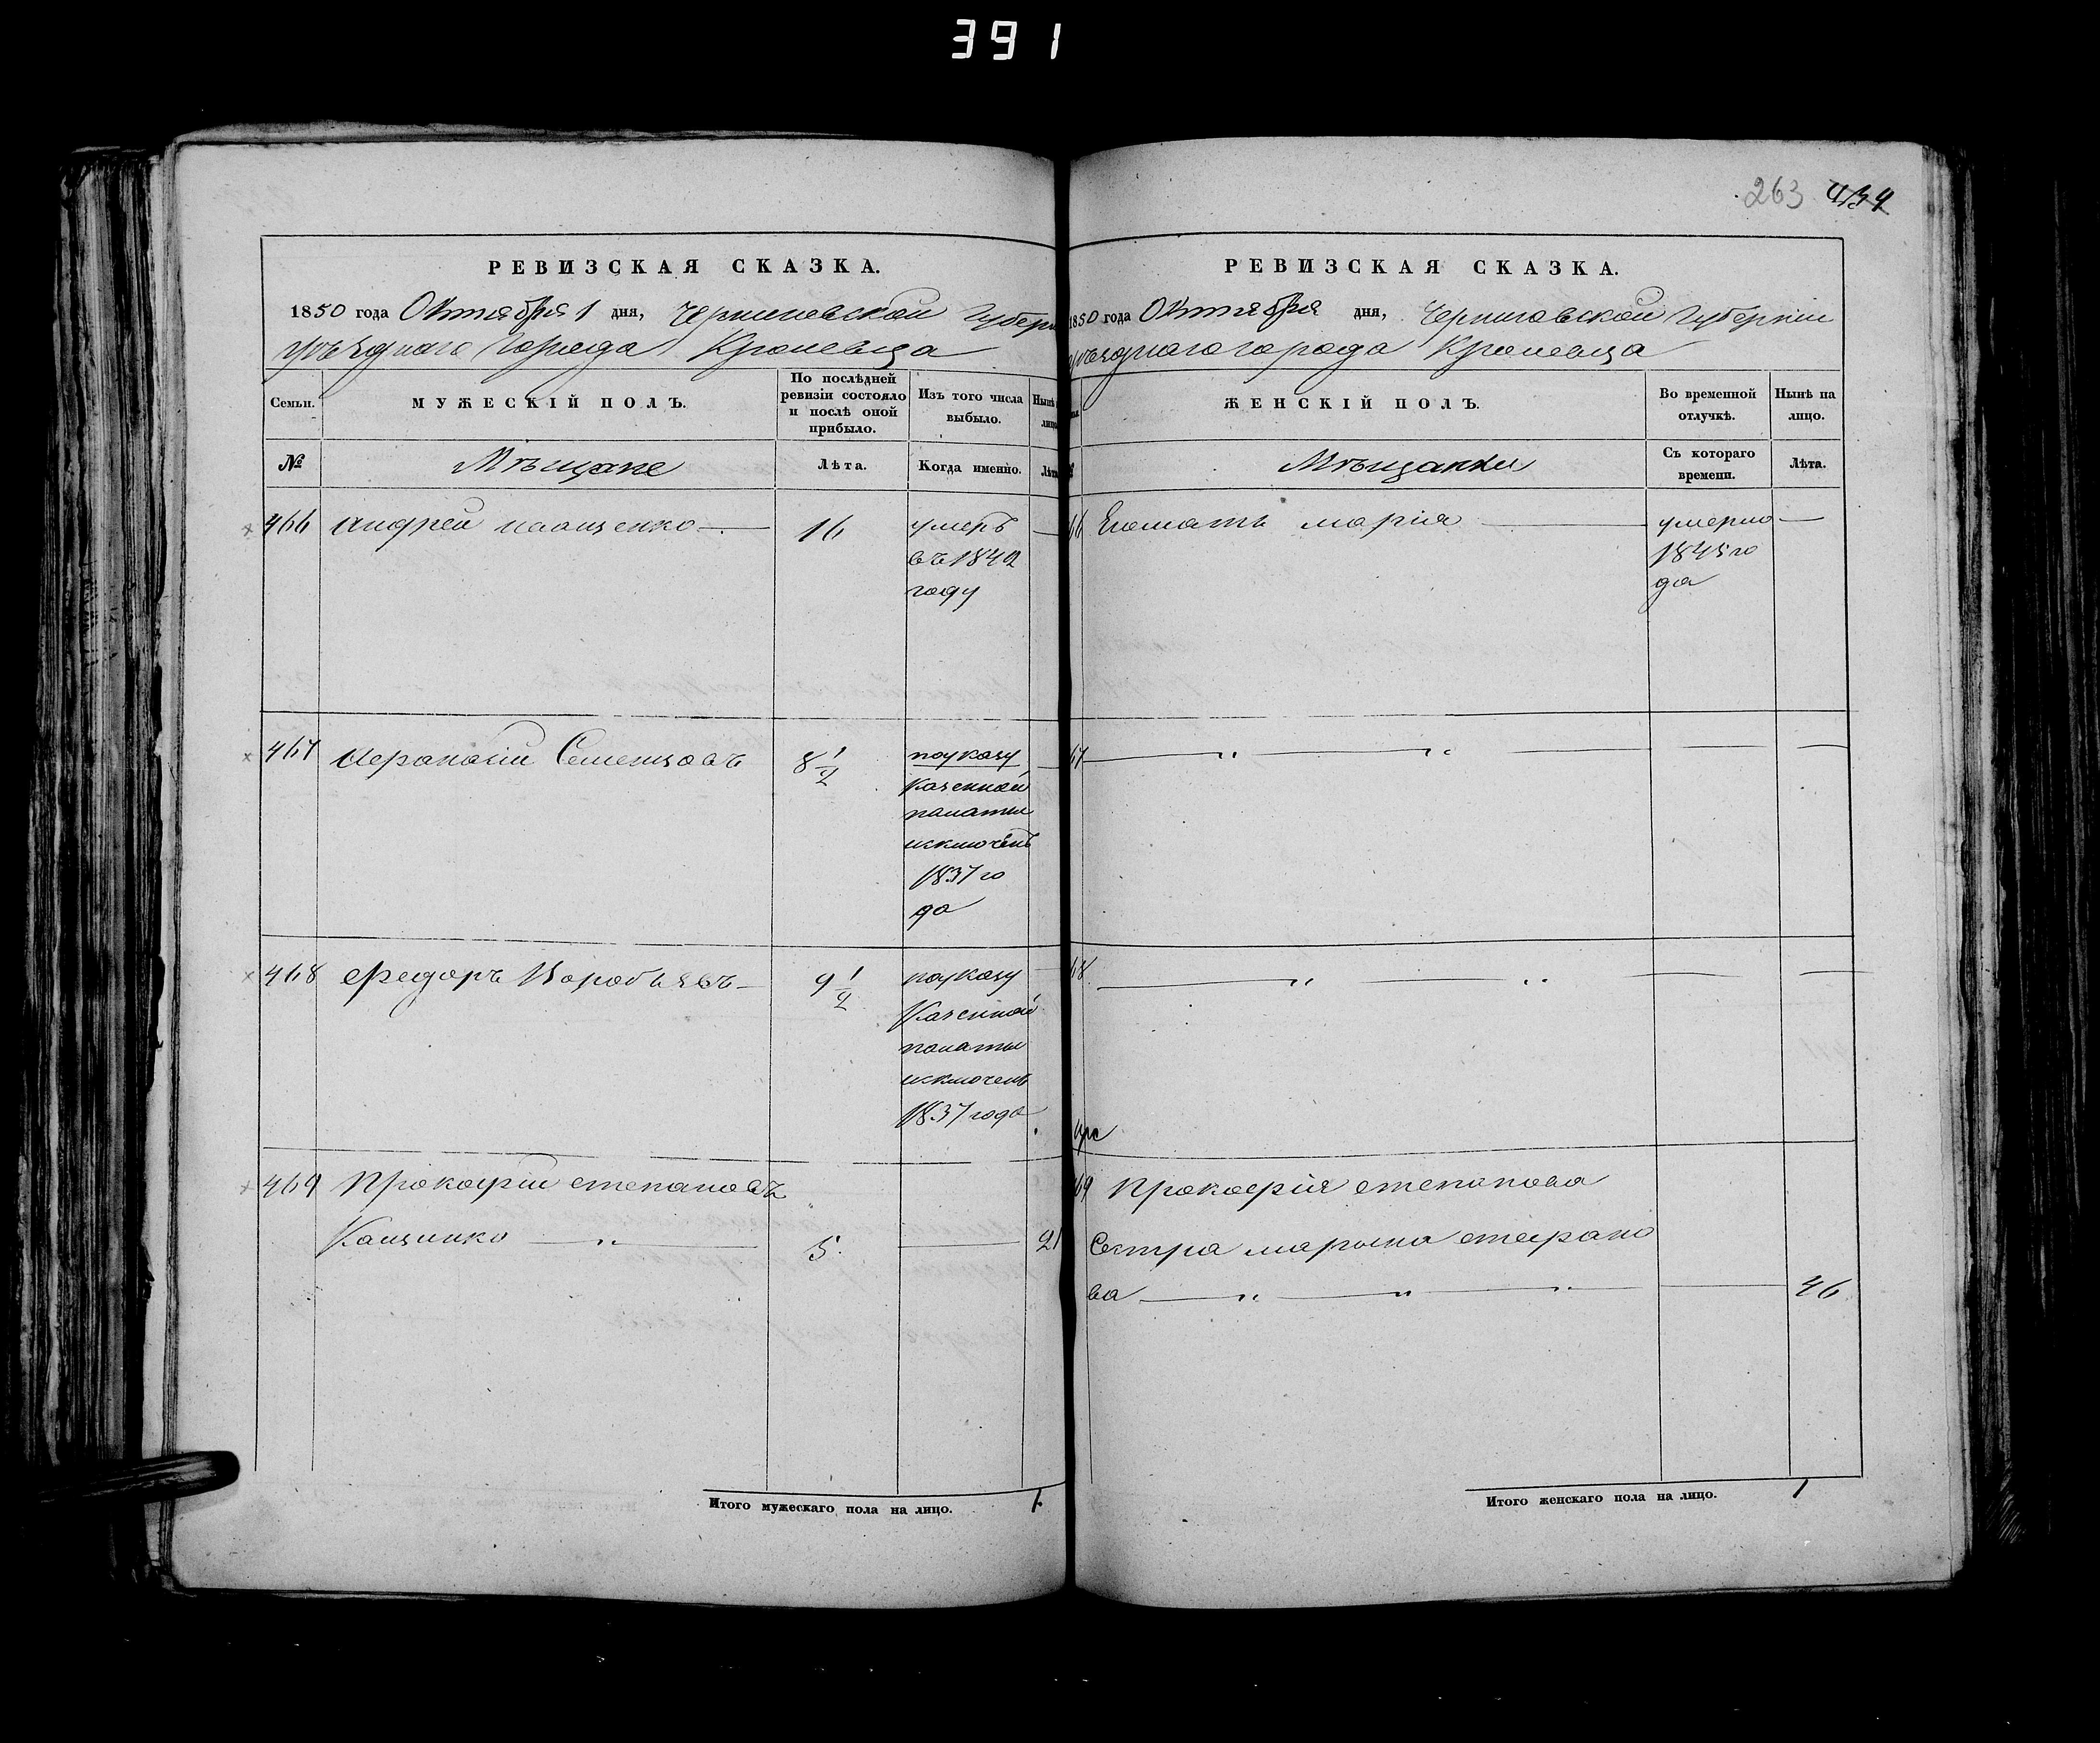 391
РЕВИЗСКАЯ СКАЗКА.
1850 года Октября 1 дня, Черниговской Губерн
уѣзднаго города Кролевца
Семьи.
МУЖЕСКІЙ ПОЛЪ.
По послѣдней
ревизіи состояло
и послѣ оной
прибыло.
Изъ того числа
выбыло.
Нынѣ
лицо
№
Мѣщане
Лѣта.
Когда именно.
Лѣта
466 андрей иващенко 16 умеръ
въ 1842
году
467 Аерапасій Семенцовъ 8 1/2 по указу
Казенной
палаты
исключенъ
1837 го
да
468 Федоръ Воробьявъ 9 1/2 по указу
Казенной
палаты
исключенъ
1837 года
469 Прокофій степановъ
Кащинко 5. 21
Итого мужескаго пола на лицо. 1.
263 434
РЕВИЗСКАЯ СКАЗКА.
1850 года Октября дня, Черниговской Губерніи
уѣзднаго города Кролевца
ЖЕНСКІЙ ПОЛЪ.
Во временной
отлучкѣ.
Нынѣ на
лицо.
Мѣщанки
Съ котораго
времени.
Лѣта.
66 Егомать марія умерла
1845 го
да
67
68
69 Прокофія степанова
Сестра марьина стефано
ва 46
Итого женскаго пола на лицо. 1